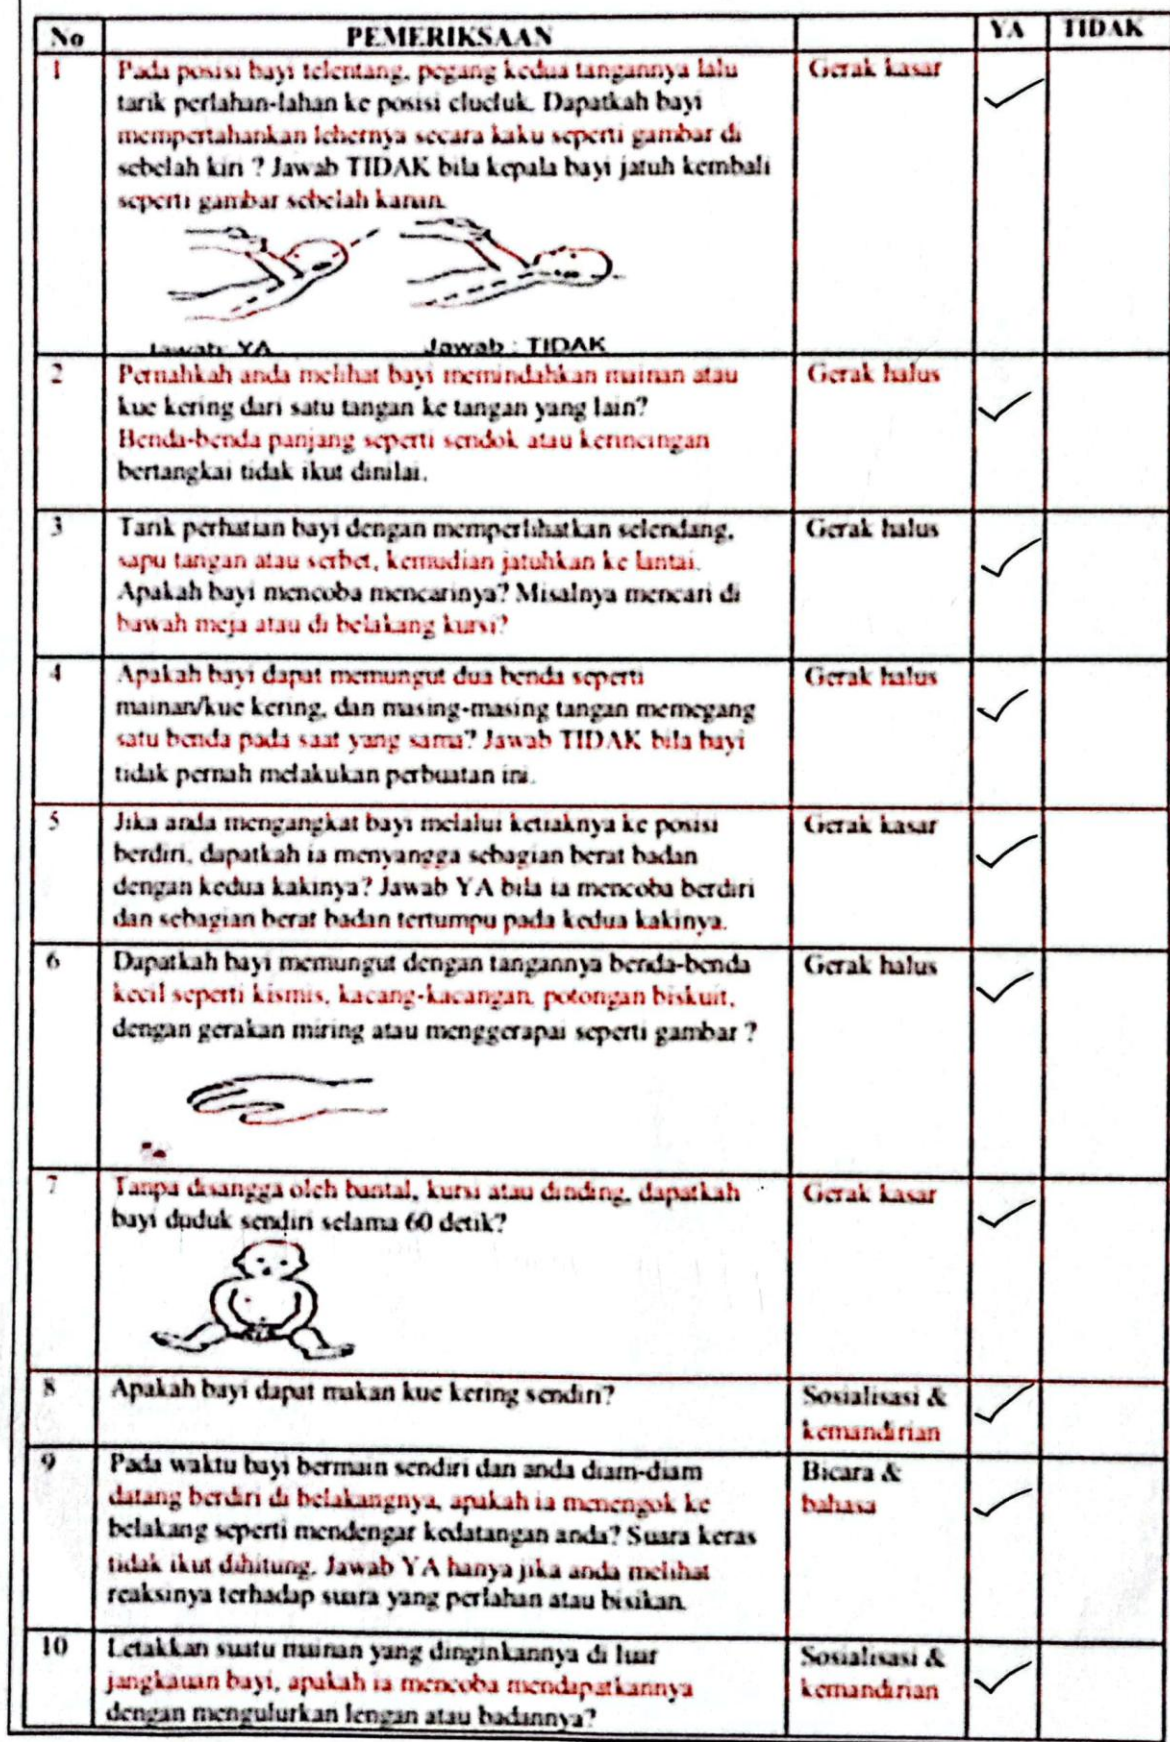 No PEMERIKSAAN YA TIDAK
1 Pada posisi bayi telentang, pegang kedua tangannya lalu Gerak kasar
tarik perlahan-lahan ke posisi clucluk. Dapatkah bayi
mempertahankan lehernya secara kaku seperti gambar di
sebelah kiri ? Jawab TIDAK bila kepala bayi jatuh kembali
seperti gambar sebelah kanan.
Jawab: YA Jawab : TIDAK
2 Pernahkah anda melihat bayi memindahkan mainan atau Gerak halus
kue kering dari satu tangan ke tangan yang lain?
Benda-benda panjang seperti sendok atau kerincingan
bertangkai tidak ikut dinilai.
3 Tarik perhatian bayi dengan memperlihatkan selendang, Gerak halus
sapu tangan atau serbet, kemudian jatuhkan ke lantai.
Apakah bayi mencoba mencarinya? Misalnya mencari di
bawah meja atau di belakang kursi?
4 Apakah bayi dapat memungut dua benda seperti Gerak halus
mainan/kue kering, dan masing-masing tangan memegang
satu benda pada saat yang sama? Jawab TIDAK bila bayi
tidak pernah melakukan perbuatan ini.
5 Jika anda mengangkat bayi melalui ketiaknya ke posisi Gerak kasar
berdiri, dapatkah ia menyangga sebagian berat badan
dengan kedua kakinya? Jawab YA bila ia mencoba berdiri
dan sebagian berat badan tertumpu pada kedua kakinya.
6 Dapatkah bayi memungut dengan tangannya benda-benda Gerak halus
kecil seperti kismis, kacang-kacangan, potongan biskuit,
dengan gerakan miring atau menggerapai seperti gambar ?
7 Tanpa disangga oleh bantal, kursi atau dinding, dapatkah Gerak kasar
bayi duduk sendiri selama 60 detik?
8 Apakah bayi dapat makan kue kering sendiri? Sosialisasi &
kemandirian
9 Pada waktu bayi bermain sendiri dan anda diam-diam Bicara &
datang berdiri di belakangnya, apakah ia menengok ke bahasa
belakang seperti mendengar kedatangan anda? Suara keras
tidak ikut dihitung. Jawab YA hanya jika anda melihat
reaksinya terhadap suara yang perlahan atau bisikan.
10 Letakkan suatu mainan yang dinginkannya di luar Sosialisasi &
jangkauan bayi, apakah ia mencoba mendapatkannya kemandirian
dengan mengulurkan lengan atau badannya?